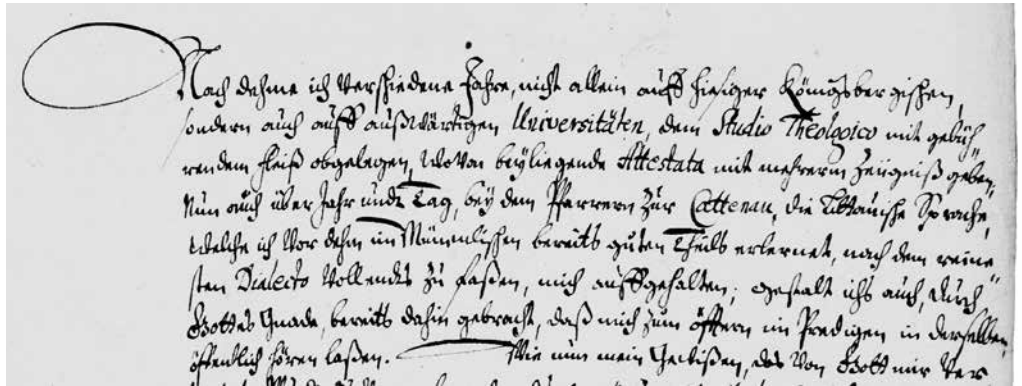 Nach dehme ich verschiedene Jahre, nicht allein auff hiesiger Königsbergischen,
sondern auch auff außwärtigen Universitäten, dem Studio Theologico mit gebüh„
rendem fleiß obgelegen, wovon beyliegende Attestata mit mehrerm Zeügniß geben;
Nun auch über Jahr undt Tag, bey dem Pfarrern zur Cattenau, die Littauische Sprache,
welche ich vor dehm im Mümmlischen bereits guten Theils erlernet, nach dem reine„
sten Dialecto vollendts zu faßen, mich auffgehalten; gestalt ichs auch, durch
Gottes Gnade, bereits dahin gebracht, daß mich zum öfftern im Predigen in derselben
öffentlich hören laßen. Wie nun mein Gewißen, des von Gott mir ver